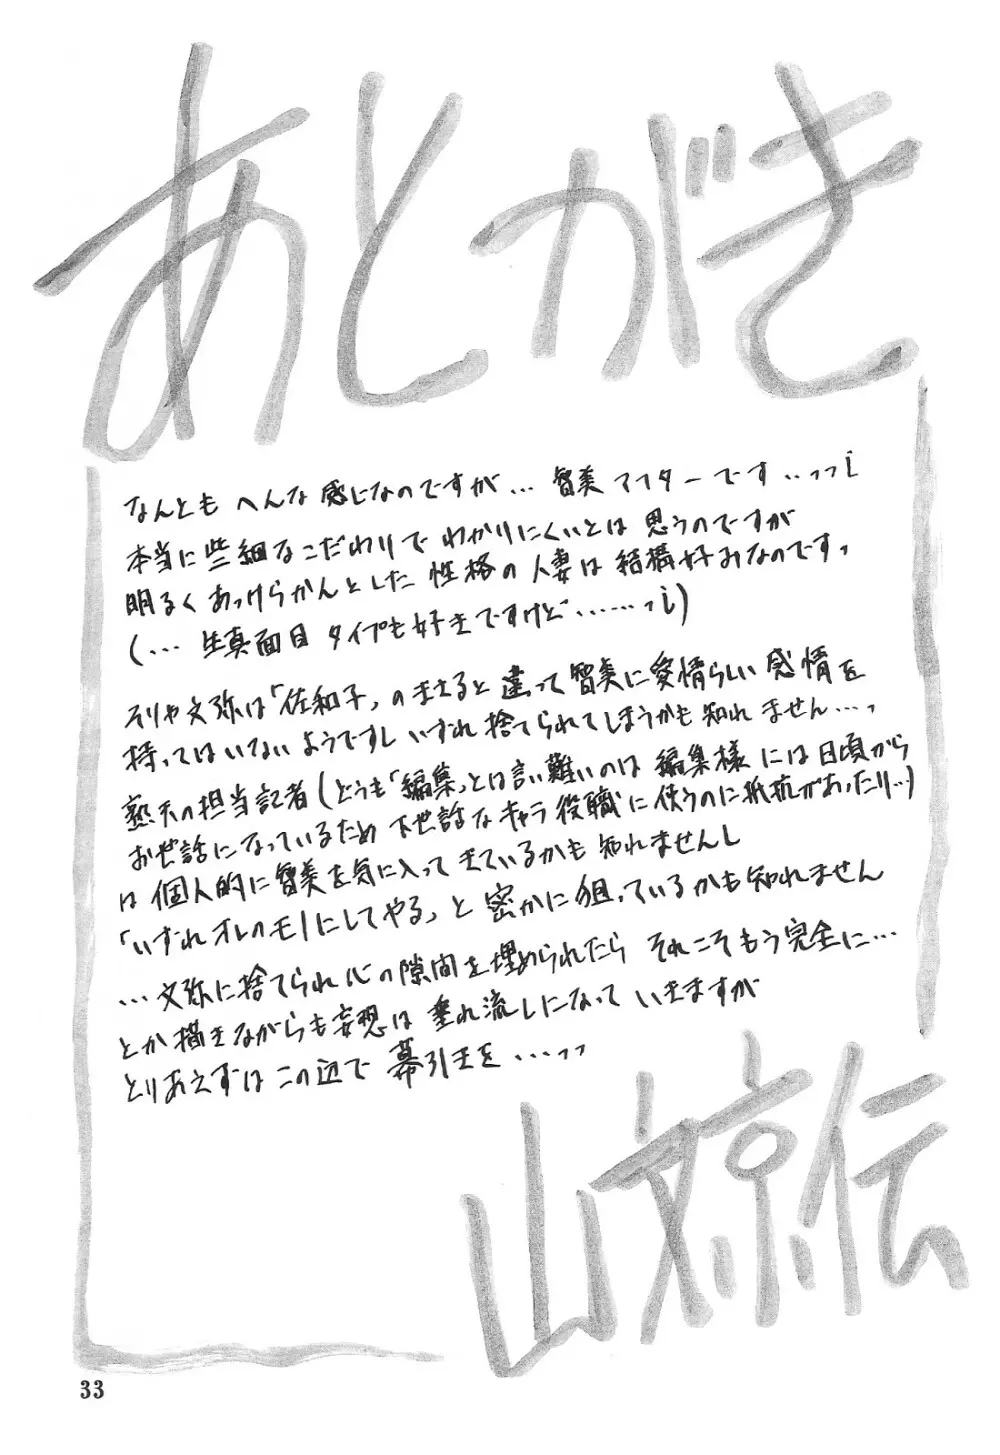 あとがき
なんとも へんな 感じなのですが… 智美アフターです‥っっi
本当に些細なこだわりで わかりにくいとは 思うのですが
明るく あっけらかんとした 性格の 人妻は 結構好みなのですっ
(… 生真面目 タイプも好きですけど……っi)
そりゃ文弥は「佐和子」のまさると違って智美に愛情らしい感情を
持ってはいないようですし いずれ捨てられてしまうかも知れません…っ
熟天の担当記者(どうも「編集」とは言い難いのは 編集様には日頃から
お世話になっているため 下世話なキャラ役職に使うのに抵抗があったり…)
は個人的に智美を気に入ってきているかも知れませんし
「いずれオレのモノにしてやる」と密かに狙っているかも知れません
…文弥に捨てられ心の隙間を埋められたら それこそもう完全に…
とか描きながらも妄想は 垂れ流しになって いきますが
とりあえずはこの辺で 幕引きを…っっ
山文京伝
33